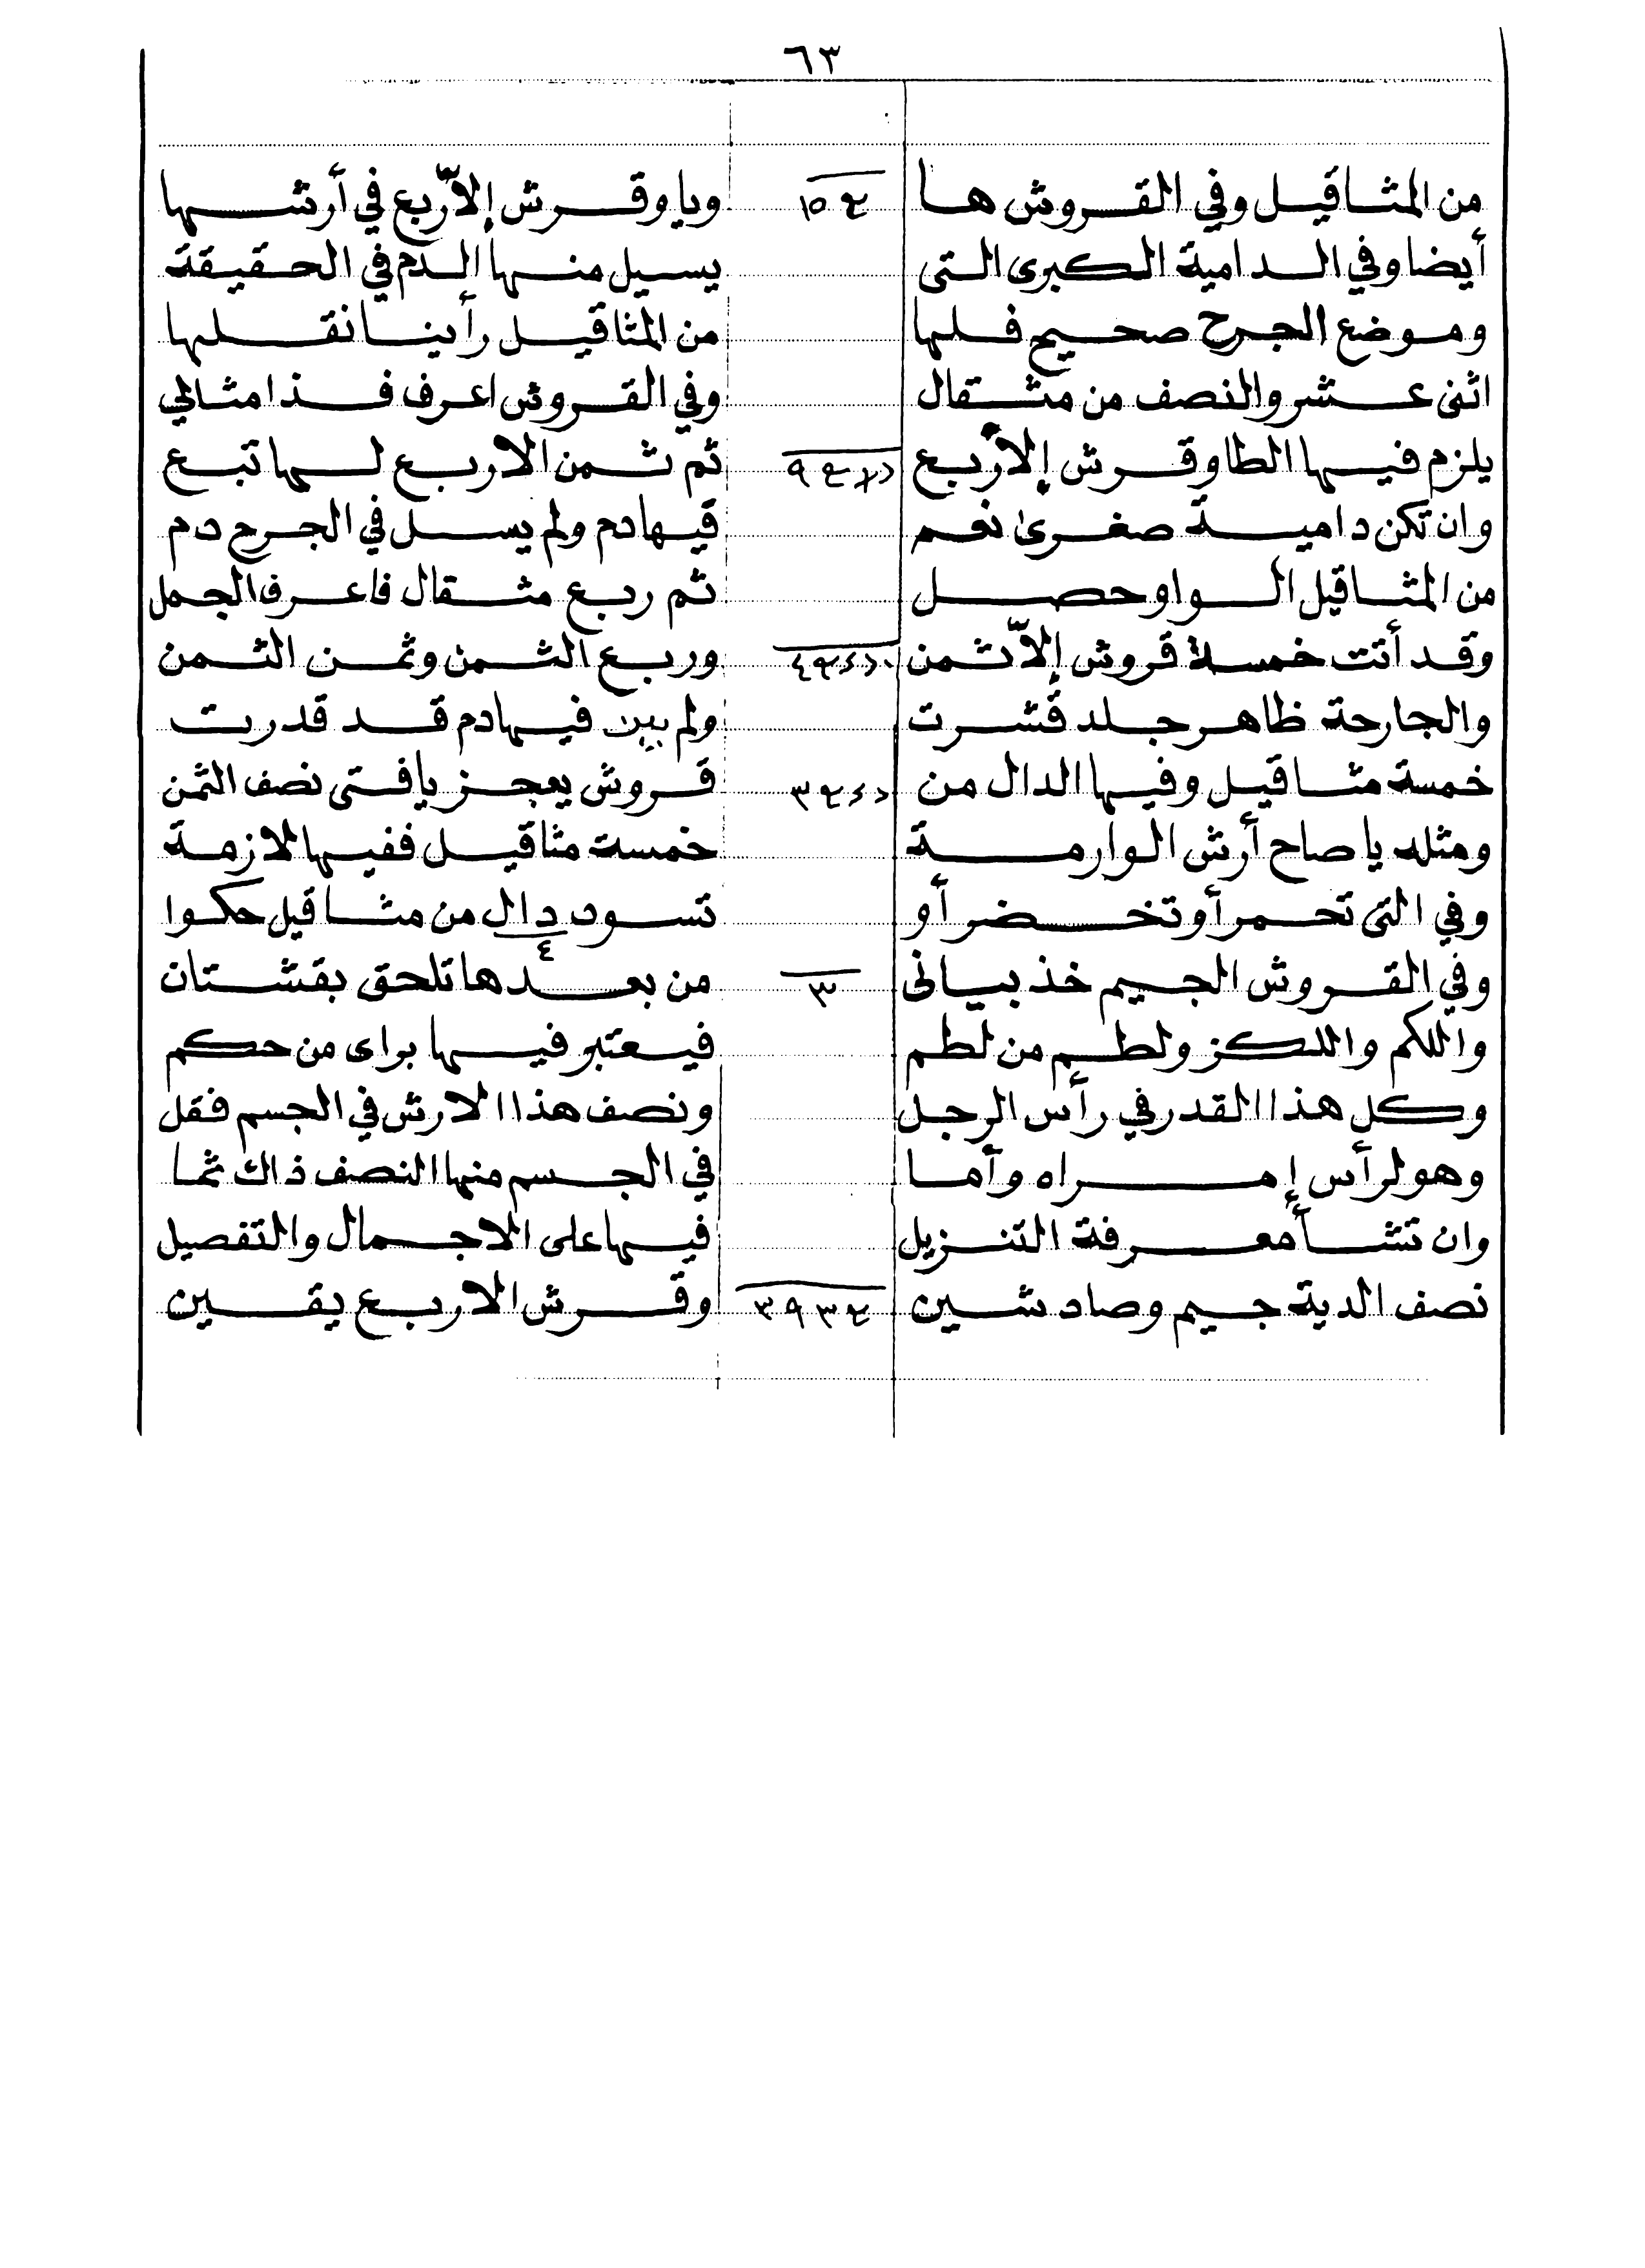 ٦٣
من المثاقيل وفي القروش ها ١٥ ويا وقرش إلاّ ربع في أرشها
أيضا وفي الدامية الكبرى التى يسيل منها الدم في الحقيقة
وموضع الجرح صحيح فلها من المثاقيل رأينا نقلها
اثنى عشر والنصف من مثقال وفي القروش اعرف فذا مثالي
يلزم فيها الطا وقرش إلاّ ربع ثم ثمن الاربع لها تبع
وان تكن دامية صغرى نعم فيها دم ولم يسل في الجرح دم
من المثاقيل الواو حصل ثم ربع مثقال فاعرف الجمل
وقد أتت خمسة قروش إلاّ ثمن وربع الثمن وثمن الثمن
والجارحة ظاهر جلد قشرت ولم يبين فيها دم قد قدرت
خمسة مثاقيل وفيها الدال من قروش يعجز يا فتى نصف الثمن
ومثله يا صاح أرش الوارمة خمسة مثاقيل ففيها لازمة
وفي التى تحمر أو تخضر أو تسود دال من مثاقيل حكوا
٤
وفي القروش الجيم خذ بيانى ٣ من بعدها تلحق بقشتان
واللكم واللكز ولطم من لطم فيعتبر فيها براى من حكم
وكل هذا القدر في رأس الرجل ونصف هذا الارش في الجسم فقل
وهو لرأس إمراه وأما في الجسم منها النصف ذاك ثما
وان تشأ معرفة التنزيل فيها على الاجمال والتفصيل
نصف الدية جيم وصاد شين وقرش الاربع يقين